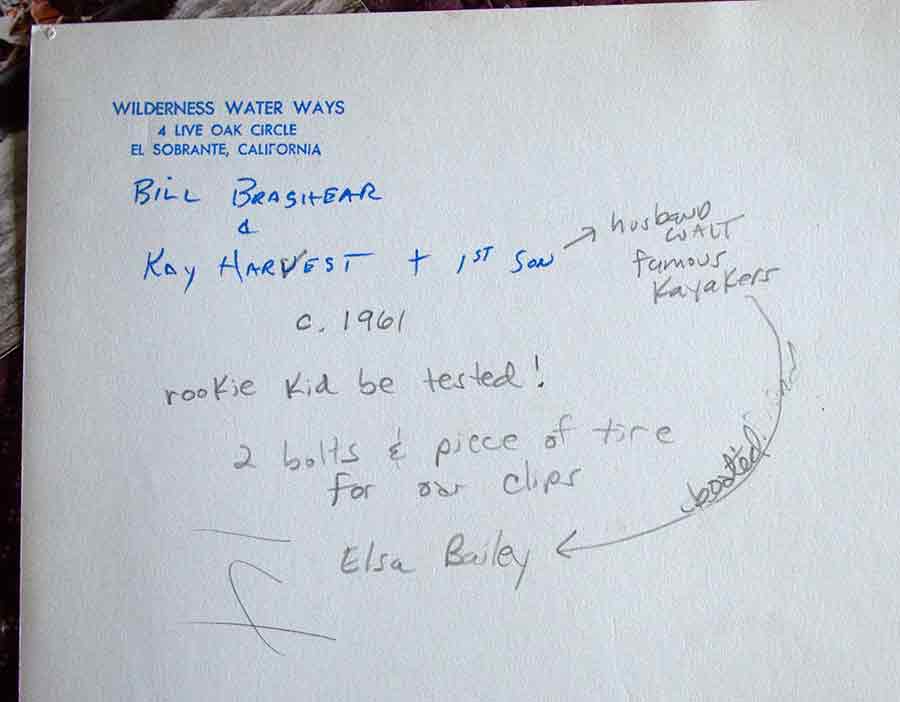 WILDERNESS WATER WAYS
4 LIVE OAK CIRCLE
EL SOBRANTE, CALIFORNIA
BILL BRASHEAR
&
KAY HARVEST + 1ST SON
husband
WALT
famous
Kayakers
c. 1961
rookie kid be tested!
2 bolts & piece of tire
for oar clips
boated
Elsa Bailey